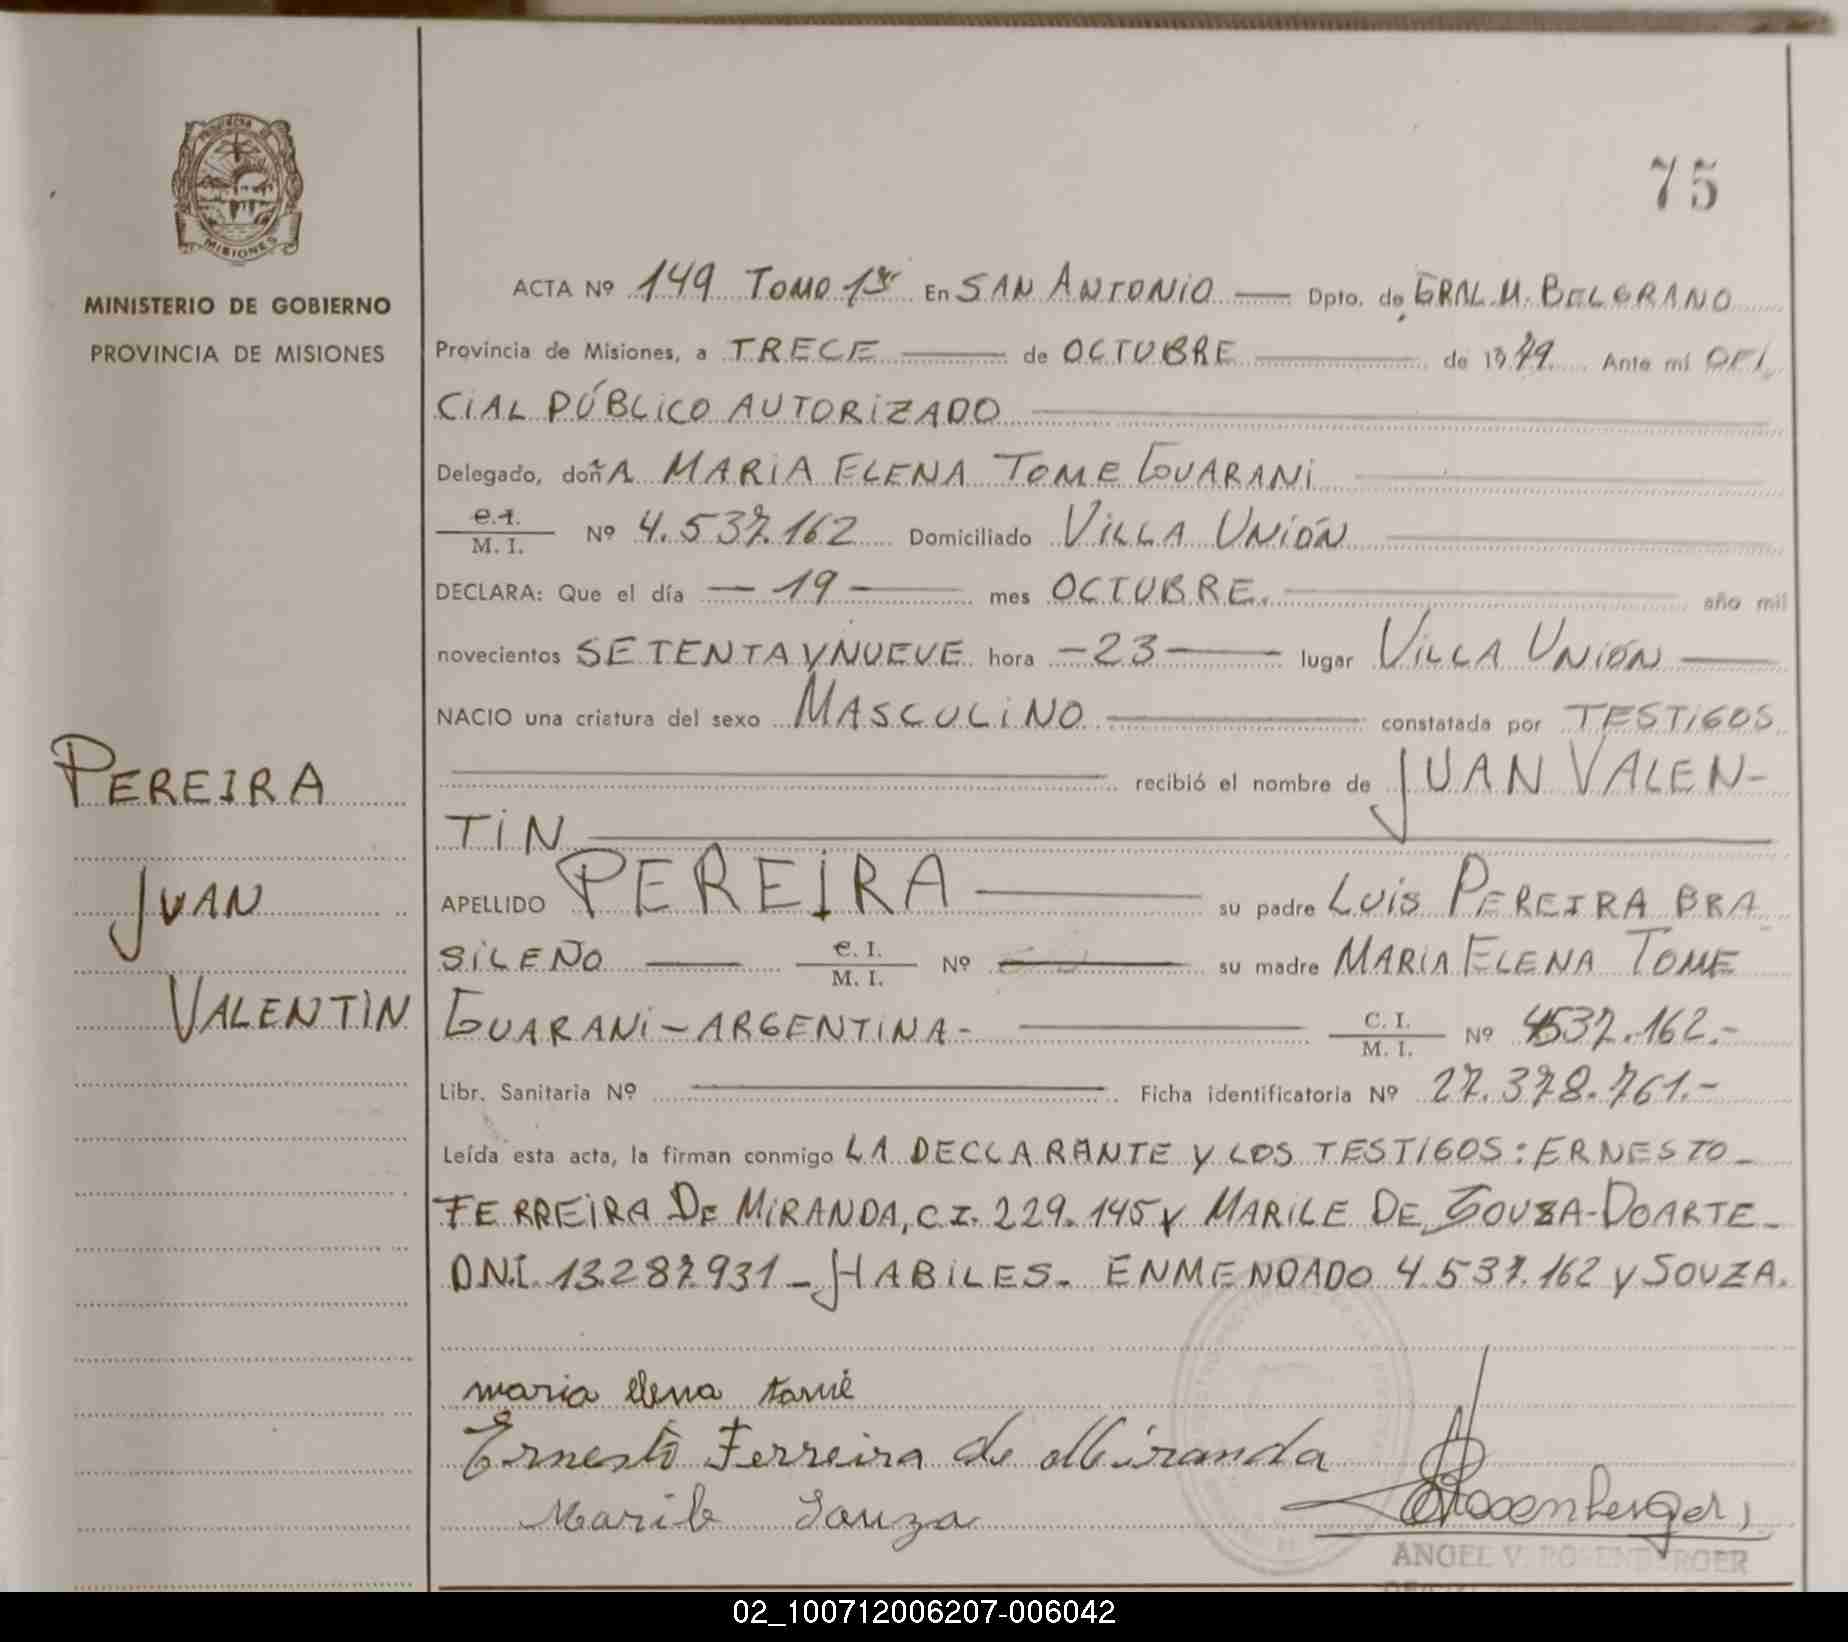 75
PROVINCIA DE
MISIONES
MINISTERIO DE GOBIERNO
PROVINCIA DE MISIONES
ACTA Nº 149 TOMO 1º En SAN ANTONIO — Dpto. de GRAL. M. BELGRANO
Provincia de Misiones, a TRECE — de OCTUBRE — de 1979. Ante mí OFI
CIAL PÚBLICO AUTORIZADO
Delegado, doñA MARIA ELENA TOME GUARANI
C.I. / M.I. Nº 4.537.162 Domiciliado VILLA UNIÓN
DECLARA: Que el día — 19 — mes OCTUBRE. — año mil
novecientos SETENTA Y NUEVE hora — 23 — lugar VILLA UNIÓN —
NACIO una criatura del sexo MASCULINO — constatada por TESTIGOS
— recibió el nombre de JUAN VALEN-
TIN —
APELLIDO PEREIRA — su padre LUIS PEREIRA BRA
SILEÑO — C.I. / M.I. Nº — su madre MARIA ELENA TOME
GUARANI - ARGENTINA - — C.I. / M.I. Nº 4537.162.-
Libr. Sanitaria Nº — Ficha identificatoria Nº 27.378.761.-
Leída esta acta, la firman conmigo LA DECLARANTE Y LOS TESTIGOS: ERNESTO -
FERREIRA DE MIRANDA, C.I. 229.145 Y MARILE DE SOUZA-DOARTE -
D.N.I. 13.287.931 - HABILES. ENMENDADO 4.537.162 Y SOUZA.
PEREIRA
JUAN
VALENTIN
maria elena tomé
Ernesto Ferreira de Miranda
Marile Souza
Rosenberger
ANGEL V. ROSENBERGER
02_100712006207-006042